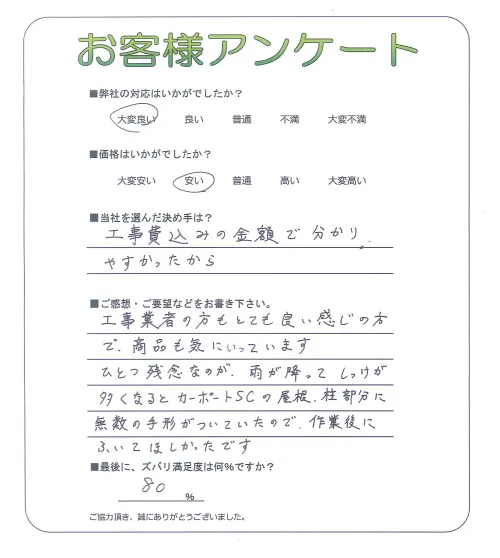 お客様アンケート
■弊社の対応はいかがでしたか?
大変良い 良い 普通 不満 大変不満
■価格はいかがでしたか?
大変安い 安い 普通 高い 大変高い
■当社を選んだ決め手は?
工事費込みの金額で分かり
やすかったから
■ご感想・ご要望などをお書き下さい。
工事業者の方もとても良い感じの方
で、商品も気にいっています
ひとつ残念なのが、雨が降って しっけが
多くなると カーポートSCの屋根、柱部分に
無数の手形がついていたので、作業後に
ふいてほしかったです
■最後に、ズバリ満足度は何%ですか?
80 %
ご協力頂き、誠にありがとうございました。